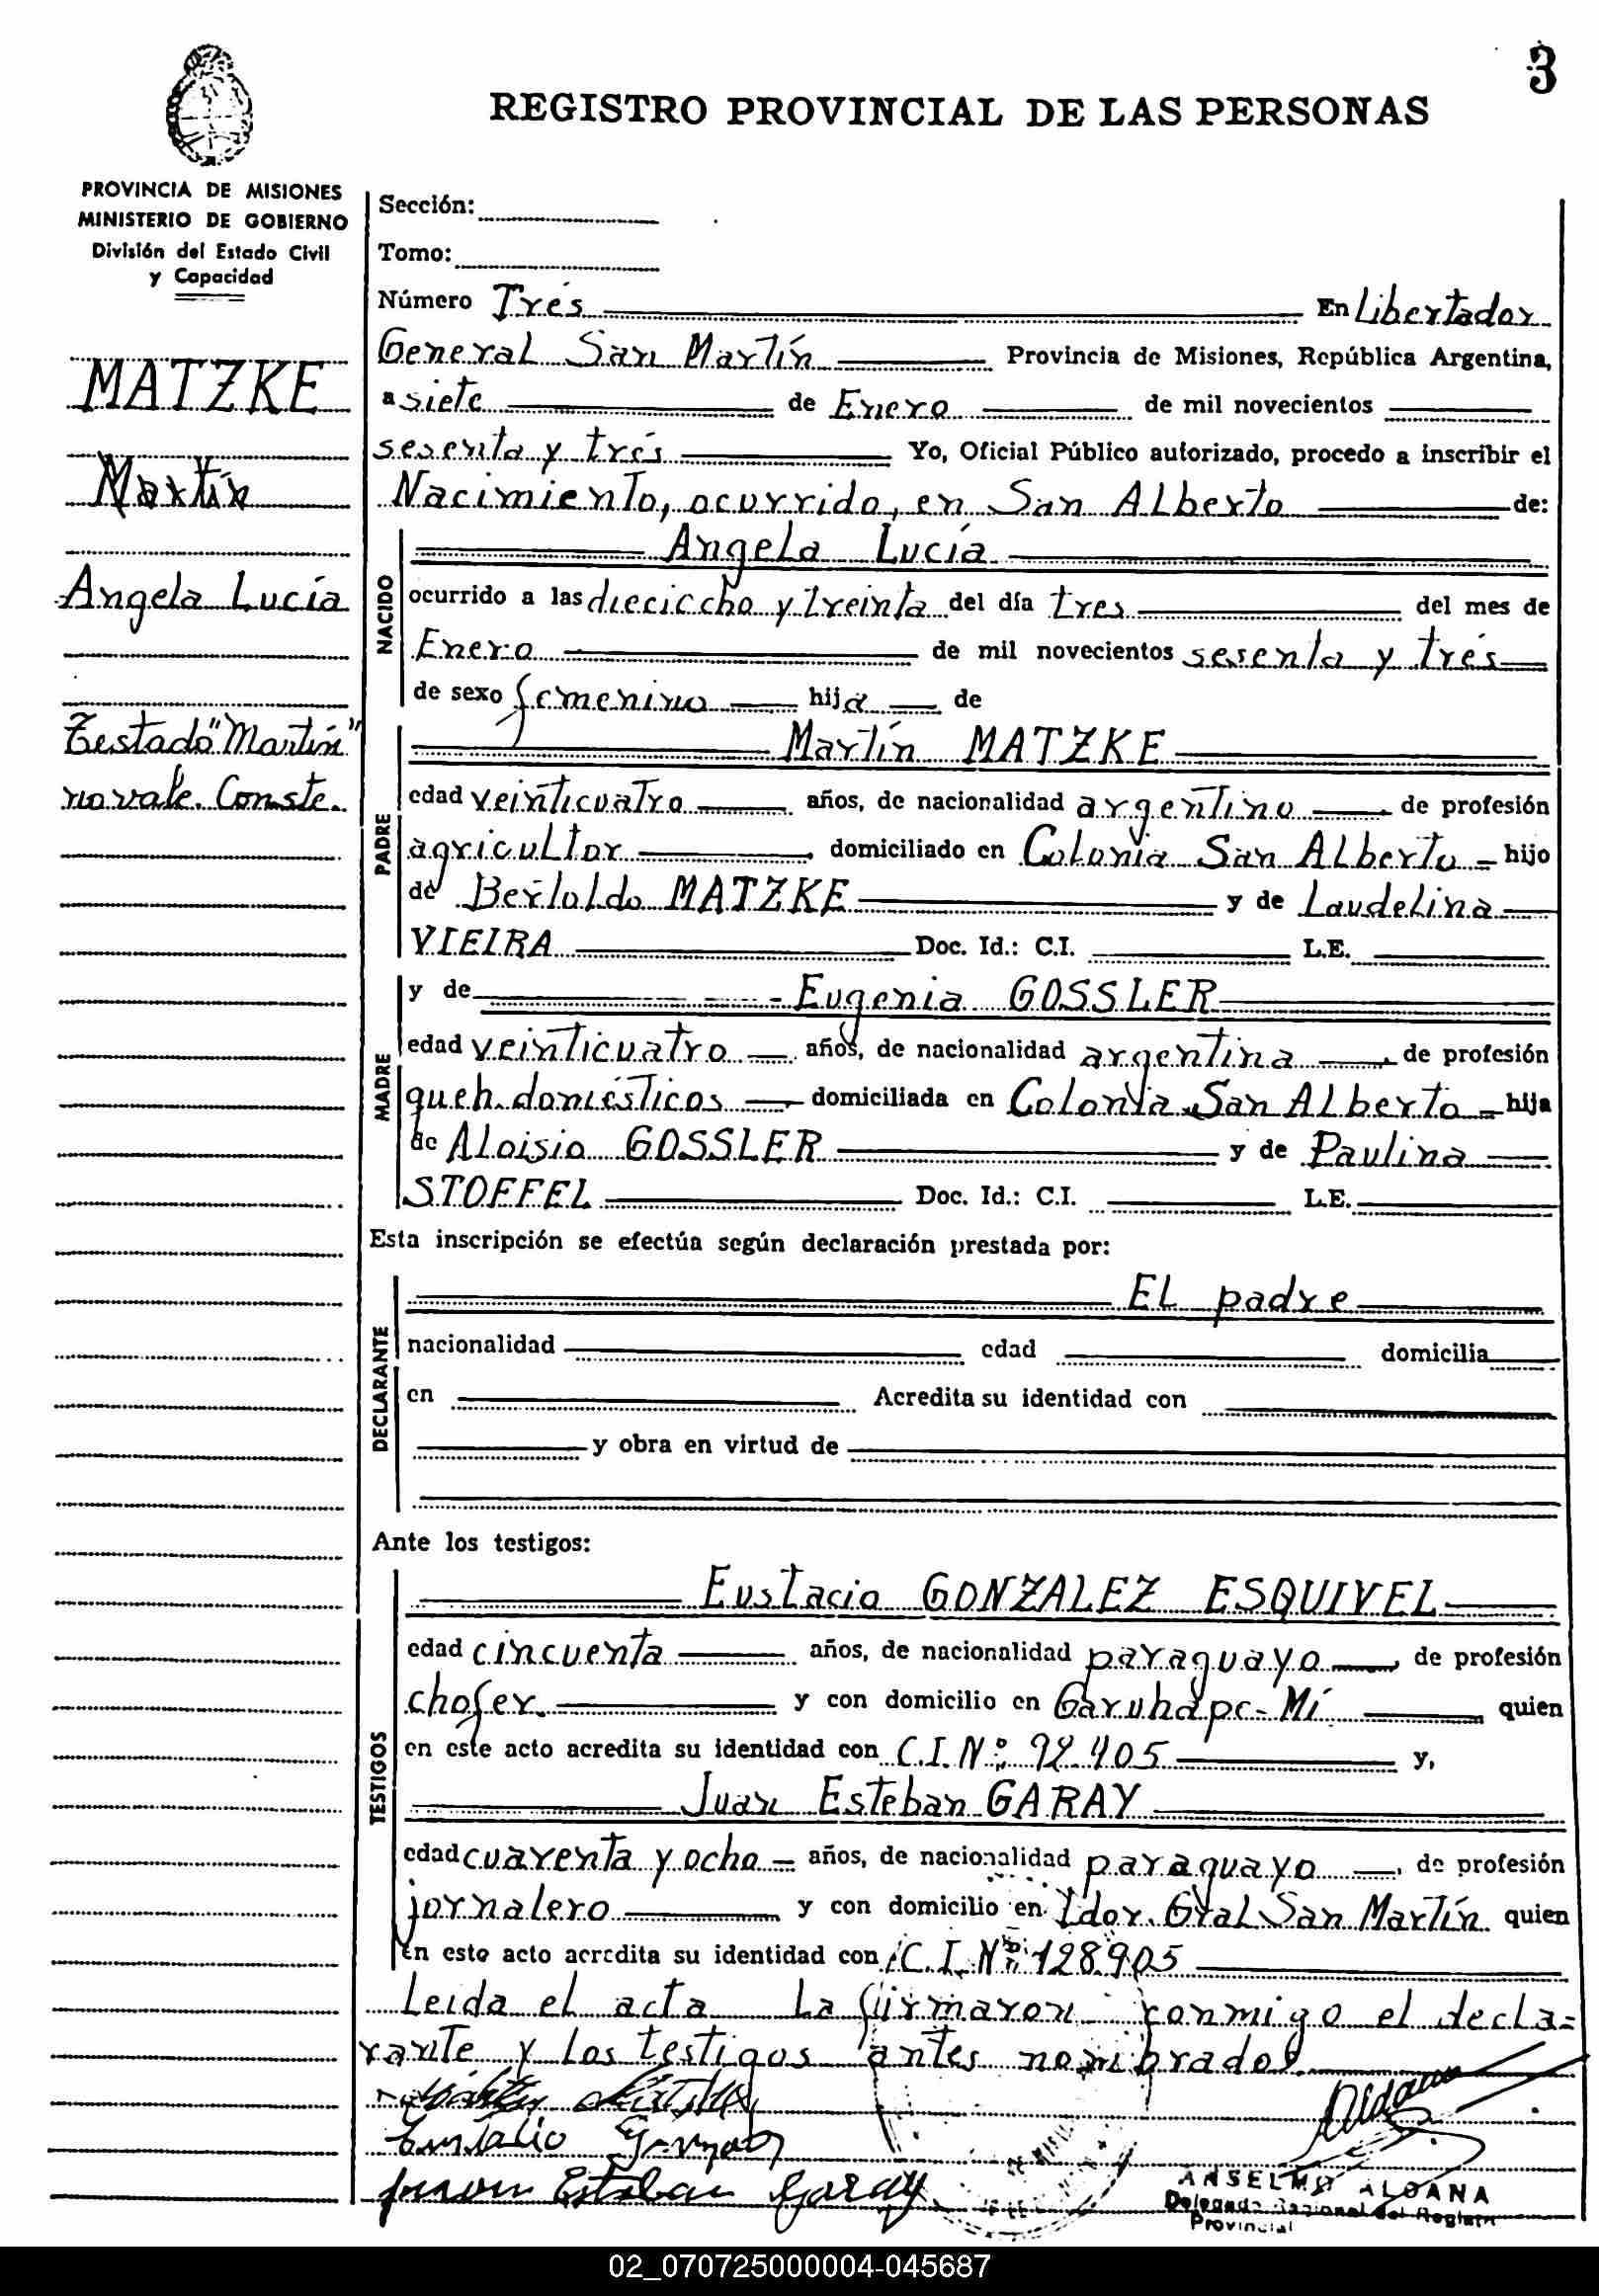 3
REGISTRO PROVINCIAL DE LAS PERSONAS
PROVINCIA DE MISIONES
MINISTERIO DE GOBIERNO
División del Estado Civil
y Capacidad
MATZKE
Martín
Angela Lucía
Testado "Martín"
no vale. Conste.
Sección:
Tomo:
Número Tres En Libertador
General San Martín Provincia de Misiones, República Argentina,
a siete de Enero de mil novecientos
sesenta y trés Yo, Oficial Público autorizado, procedo a inscribir el
Nacimiento, ocurrido, en San Alberto de:
NACIDO
Angela Lucía
ocurrido a las dieciocho y treinta del día tres del mes de
Enero de mil novecientos sesenta y trés
de sexo femenino hija de
PADRE
Martín MATZKE
edad veinticuatro años, de nacionalidad argentino, de profesión
agricultor, domiciliado en Colonia San Alberto hijo
de Bertoldo MATZKE y de Laudelina
VIEIRA Doc. Id.: C.I. L.E.
MADRE
y de Eugenia GOSSLER
edad veinticuatro años, de nacionalidad argentina, de profesión
queh. domésticos, domiciliada en Colonia San Alberto hija
de Aloisio GOSSLER y de Paulina
STOFFEL Doc. Id.: C.I. L.E.
Esta inscripción se efectúa según declaración prestada por:
DECLARANTE
El padre
nacionalidad edad domicilia
en Acredita su identidad con
y obra en virtud de
Ante los testigos:
TESTIGOS
Eustacio GONZALEZ ESQUIVEL
edad cincuenta años, de nacionalidad paraguayo, de profesión
chofer. y con domicilio en Garuhape-Mí quien
en este acto acredita su identidad con C.I. Nº 92.405 y,
Juan Esteban GARAY
edad cuarenta y ocho años, de nacionalidad paraguayo, de profesión
jornalero y con domicilio en Ldor. Gral San Martín quien
en este acto acredita su identidad con C.I. Nº 128905
Leida el acta La firmaron conmigo el decla=
rante y los testigos antes nombrados.
Juan Esteban Garay
ANSELMO ALDANA
Delegado Regional del Registro
Provincial
02_070725000004-045687